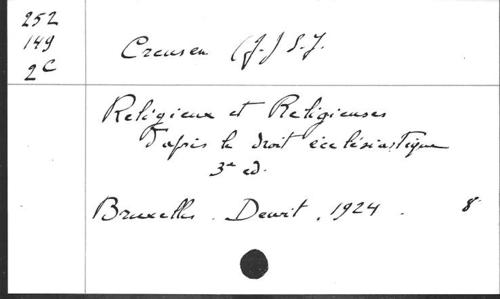 252
149
2C
Creusen (J.) S.J.
Religieux et Religieuses
d'après le droit ecclésiastique
3e ed.
Bruxelles. Dewit, 1924. 8°